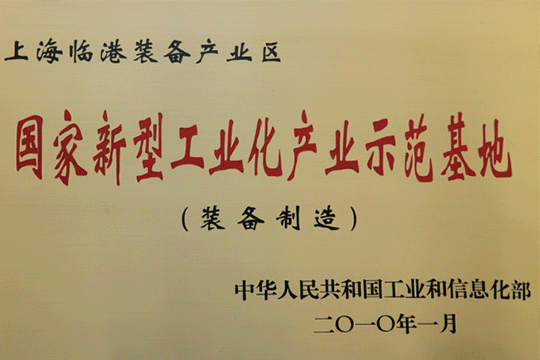 上海临港装备产业区
国家新型工业化产业示范基地
（装备制造）
中华人民共和国工业和信息化部
二〇一〇年一月